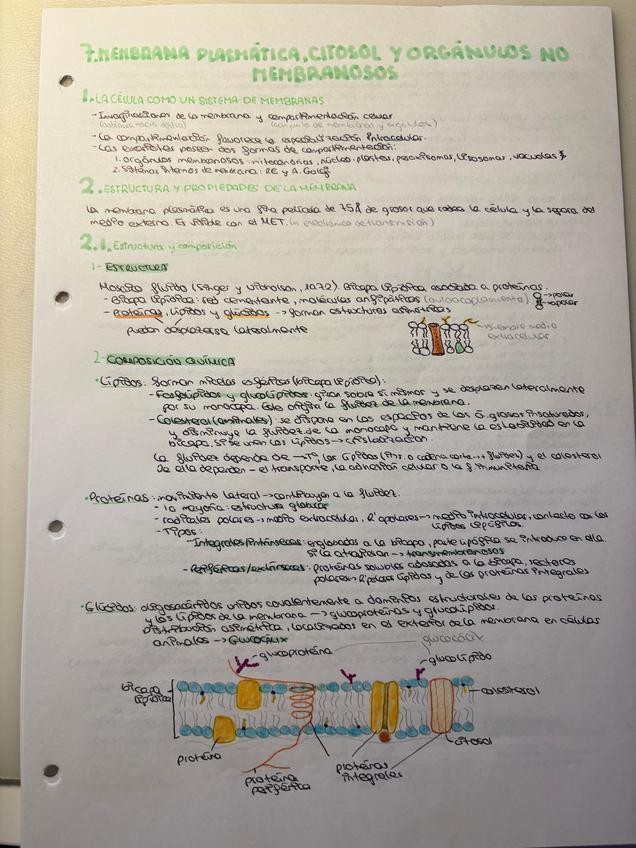 7. MEMBRANA PLASMÁTICA, CITOSOL Y ORGÁNULOS NO
MEMBRANOSOS
1. LA CÉLULA COMO UN SISTEMA DE MEMBRANAS
- Invaginaciones de la membrana y compartimentación celular
- La compartimentación favorece la especialización intracelular.
- Las eucariotas poseen dos formas de compartimentación:
1. orgánulos membranosos: mitocondrias, núcleo, plastos, peroxisomas, lisosomas, vacuolas
2. Sistemas internos de membrana: RE y A. Golgi
2. ESTRUCTURA Y PROPIEDADES DE LA MEMBRANA
La membrana plasmática es una fina película de 75Å de grosor que rodea la célula y la separa del
medio externo. Es visible con el MET. (m electrónico de transmisión)
2.1. Estructura y composición
1- ESTRUCTURA
Mosaico fluido (Singer y Nicholson, 1972). Bicapa lipídica asociada a proteínas.
- Bicapa lipídica: red cementante, moléculas anfipáticas (autoacoplamiento)
→ polar
→ apolar
- Proteínas, lípidos y glúcidos → forman estructuras asimétricas
pueden desplazarse lateralmente
siempre medio
extracelular
2- COMPOSICIÓN QUÍMICA
· Lípidos: forman micelas esféricas (bicapa lipídica):
- Fosfolípidos y glucolípidos: giran sobre sí mismos y se desplazan lateralmente
por su monocapa. Esto origina la fluidez de la membrana.
- Colesterol (animales): se dispone en los espacios de los á. grasos insaturados,
y disminuye la fluidez de la monocapa y mantiene la estabilidad en la
bicapa. Si se unen los lípidos → cristalización.
La fluidez depende de → Tª, los lípidos (ins. o cadena corta... fluidez) y el colesterol
De ella dependen → el transporte, la adhesión celular o la f inmunitaria
· Proteínas: movimiento lateral → contribuyen a la fluidez.
- la mayoría: estructura globular
- radicales polares → medio extracelular, R' apolares → medio intracelular, contacto con los
- Tipos:
- Integrales/intrínsecas: englobadas a la bicapa, parte lipófila se introduce en ella.
si la atraviesan → transmembranosas
- Periféricas/extrínsecas: proteínas solubles adosadas a la bicapa, sectores
polares → R polares lípidos y de las proteínas integrales
· Glúcidos: oligosacáridos unidos covalentemente a dominios estructurales de las proteínas
y los lípidos de la membrana → glucoproteínas y glucolípidos.
Distribución asimétrica, localizados en el exterior de la membrana en células
animales → GLUCOCÁLIX
glucocálix
glucoproteína
glucolípido
bicapa
lipídica
colesterol
proteína
proteína
periférica
proteínas
integrales
citosol